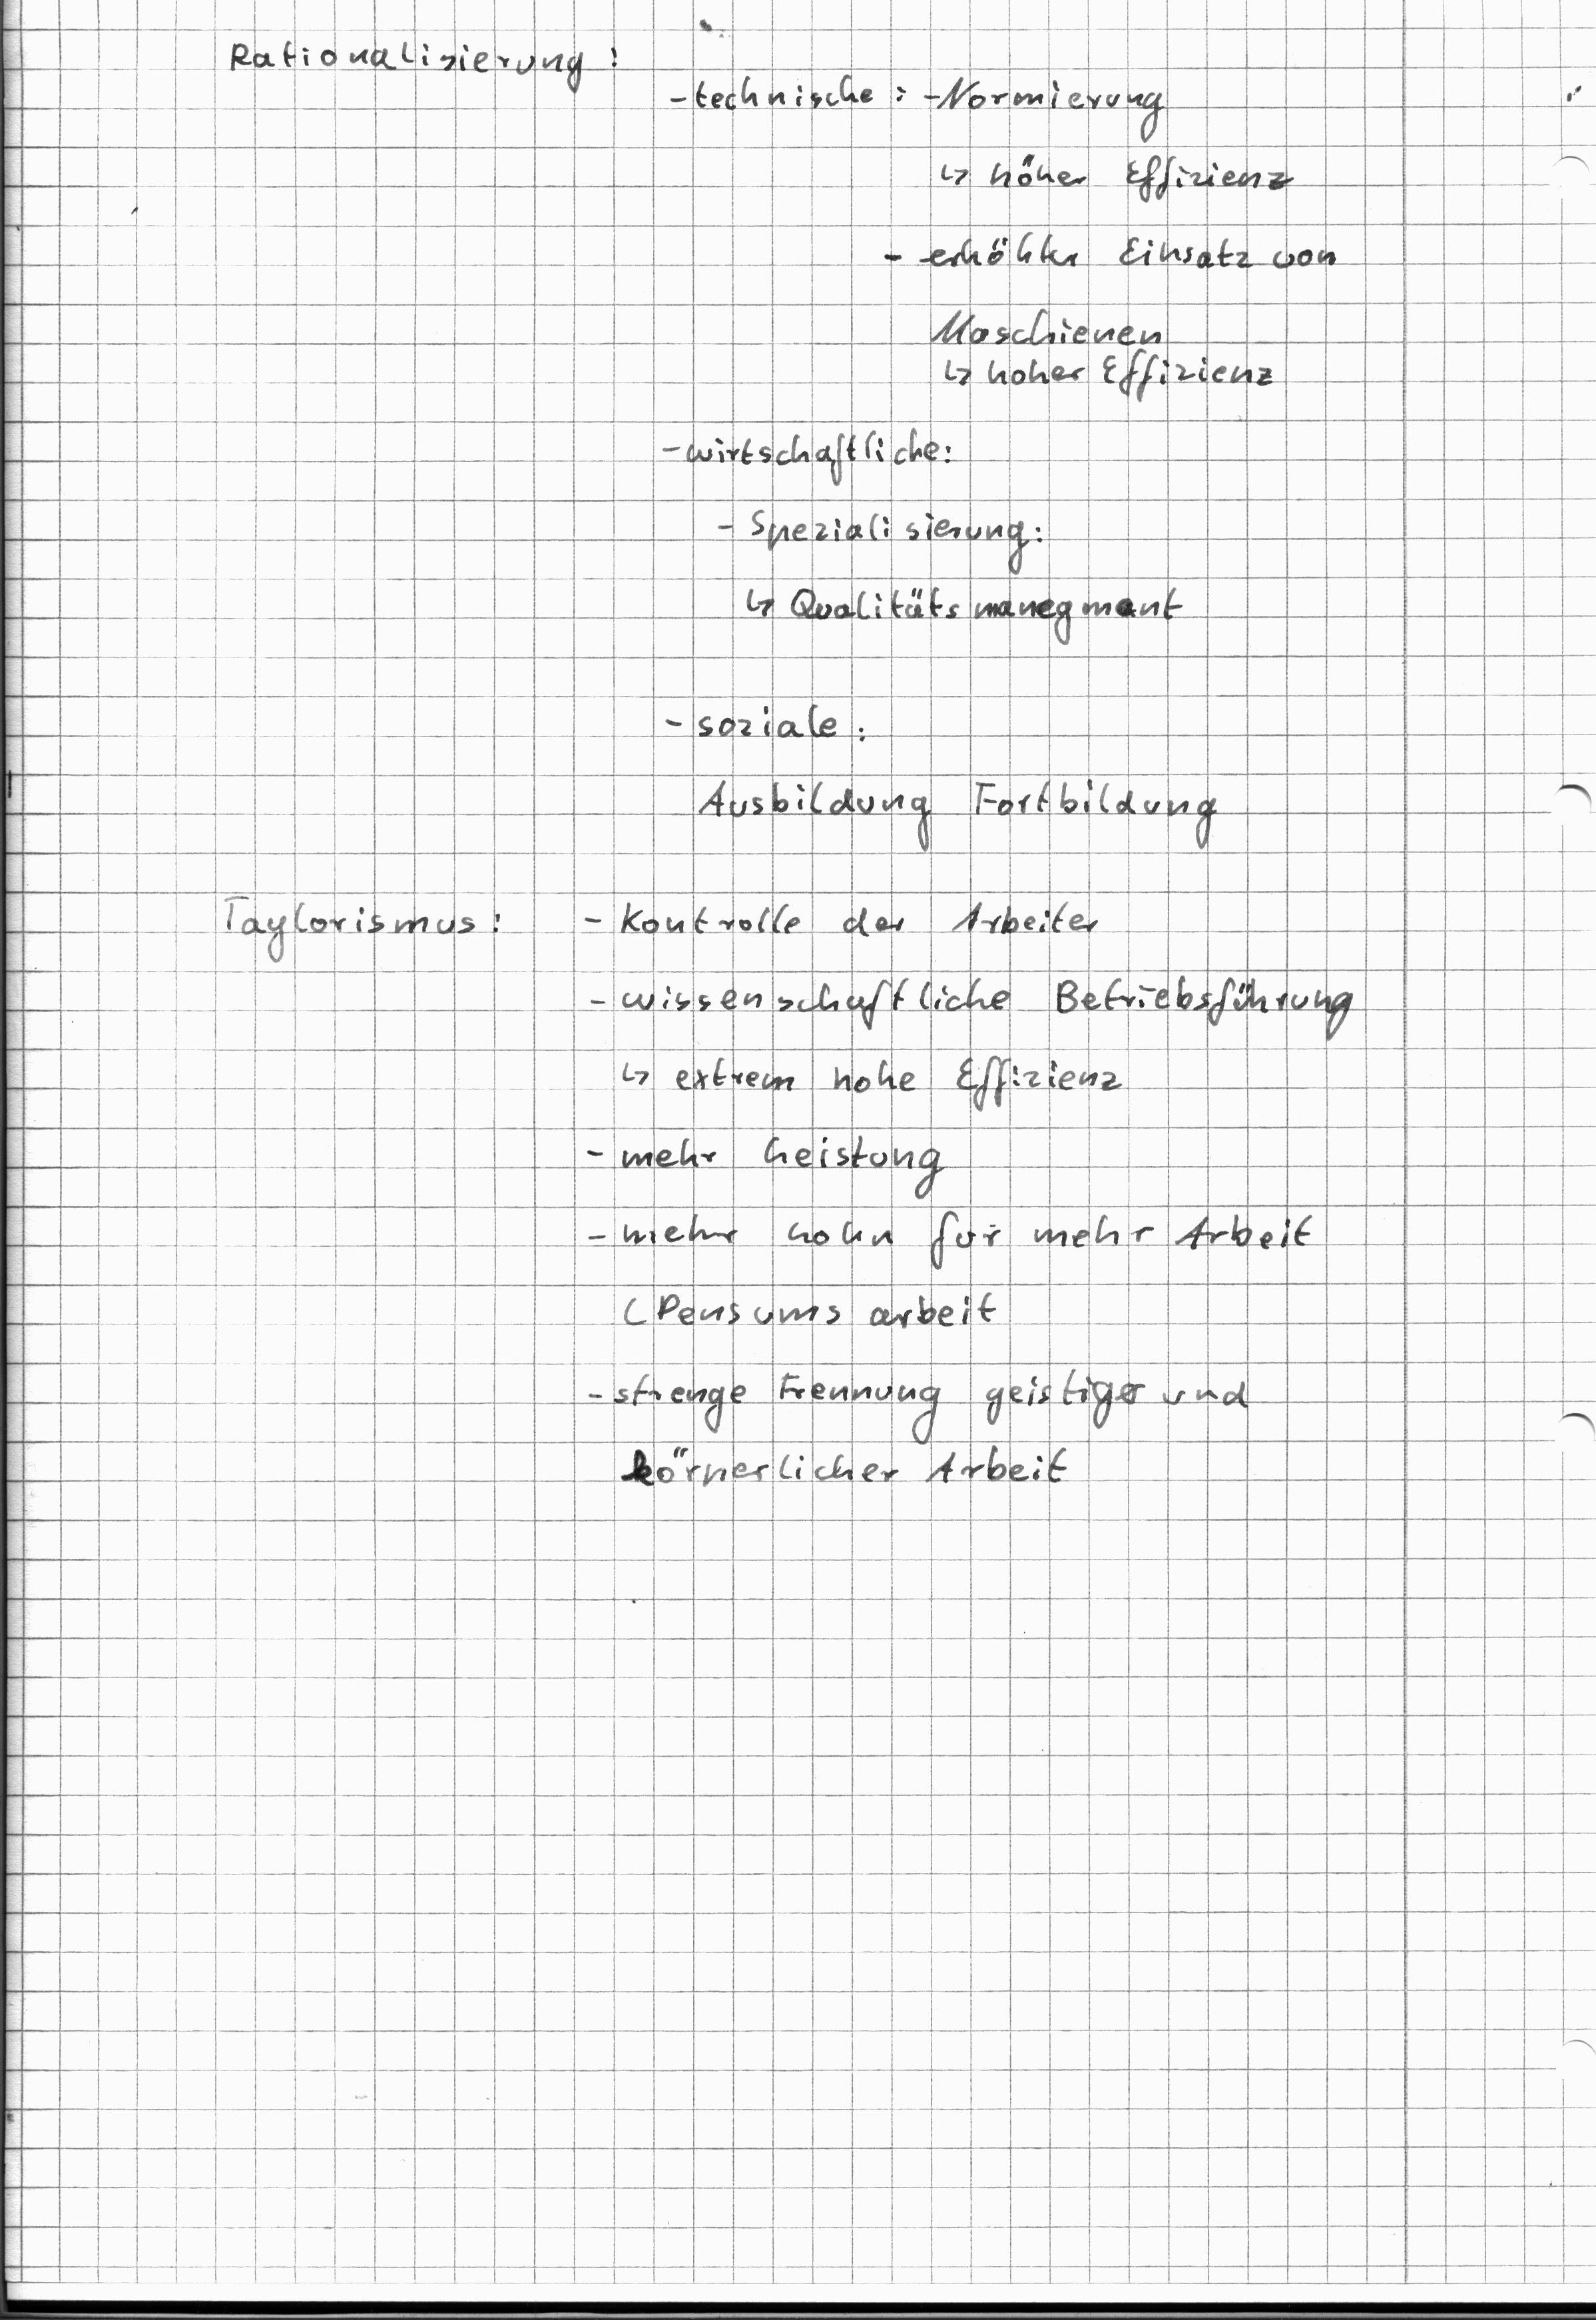 Rationalisierung:
- technische: - Normierung
↳ höher Effizienz
- erhöhter Einsatz von
Maschienen
↳ hoher Effizienz
- wirtschaftliche:
- Spezialisierung:
↳ Qualitätsmanegmant
- soziale:
Ausbildung Fortbildung
Taylorismus: - Kontrolle der Arbeiter
- wissenschaftliche Betriebsführung
↳ extrem hohe Effizienz
- mehr Leistung
- mehr Lohn für mehr Arbeit
(Pensumsarbeit
- strenge Trennung geistiger und
körperlicher Arbeit